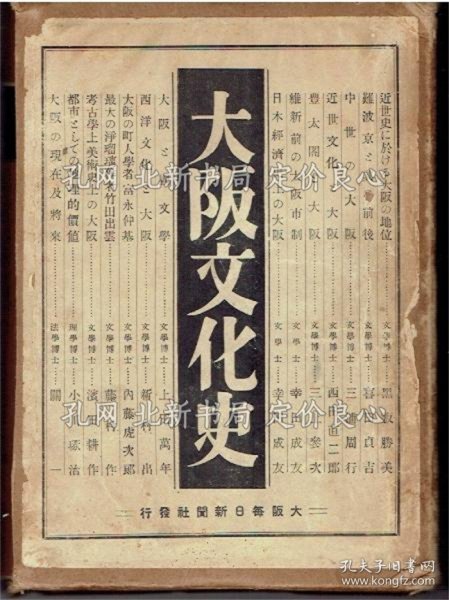 近世史に於ける大阪の地位……文學博士 黑板勝美
難波京と其前後……文學博士 喜田貞吉
中世の大阪……文學博士 三浦周行
近世文化と大阪……文學士 西田直二郎
豊太閤と大阪……文學博士 三上參次
維新前の大阪市制……文學士 幸田成友
日本經濟史上の大阪……文學士 幸田成友
大阪文化史
大阪と國文學……文學博士 上田萬年
西洋文化と大阪……文學博士 新村出
大阪の町人學者富永仲基……文學博士 內藤虎次郎
最大の淨瑠璃作者竹田出雲……文學博士 藤村作
考古學上美術史上の大阪……文學博士 濱田耕作
都市としての 的價値……理學博士 小川琢治
大阪の現在及將來……法學博士 關一
大阪每日新聞社發行
孔网 北新书局 定价良心
孔网 北新书局 定价良心
孔夫子旧书网
www.kongfz.com